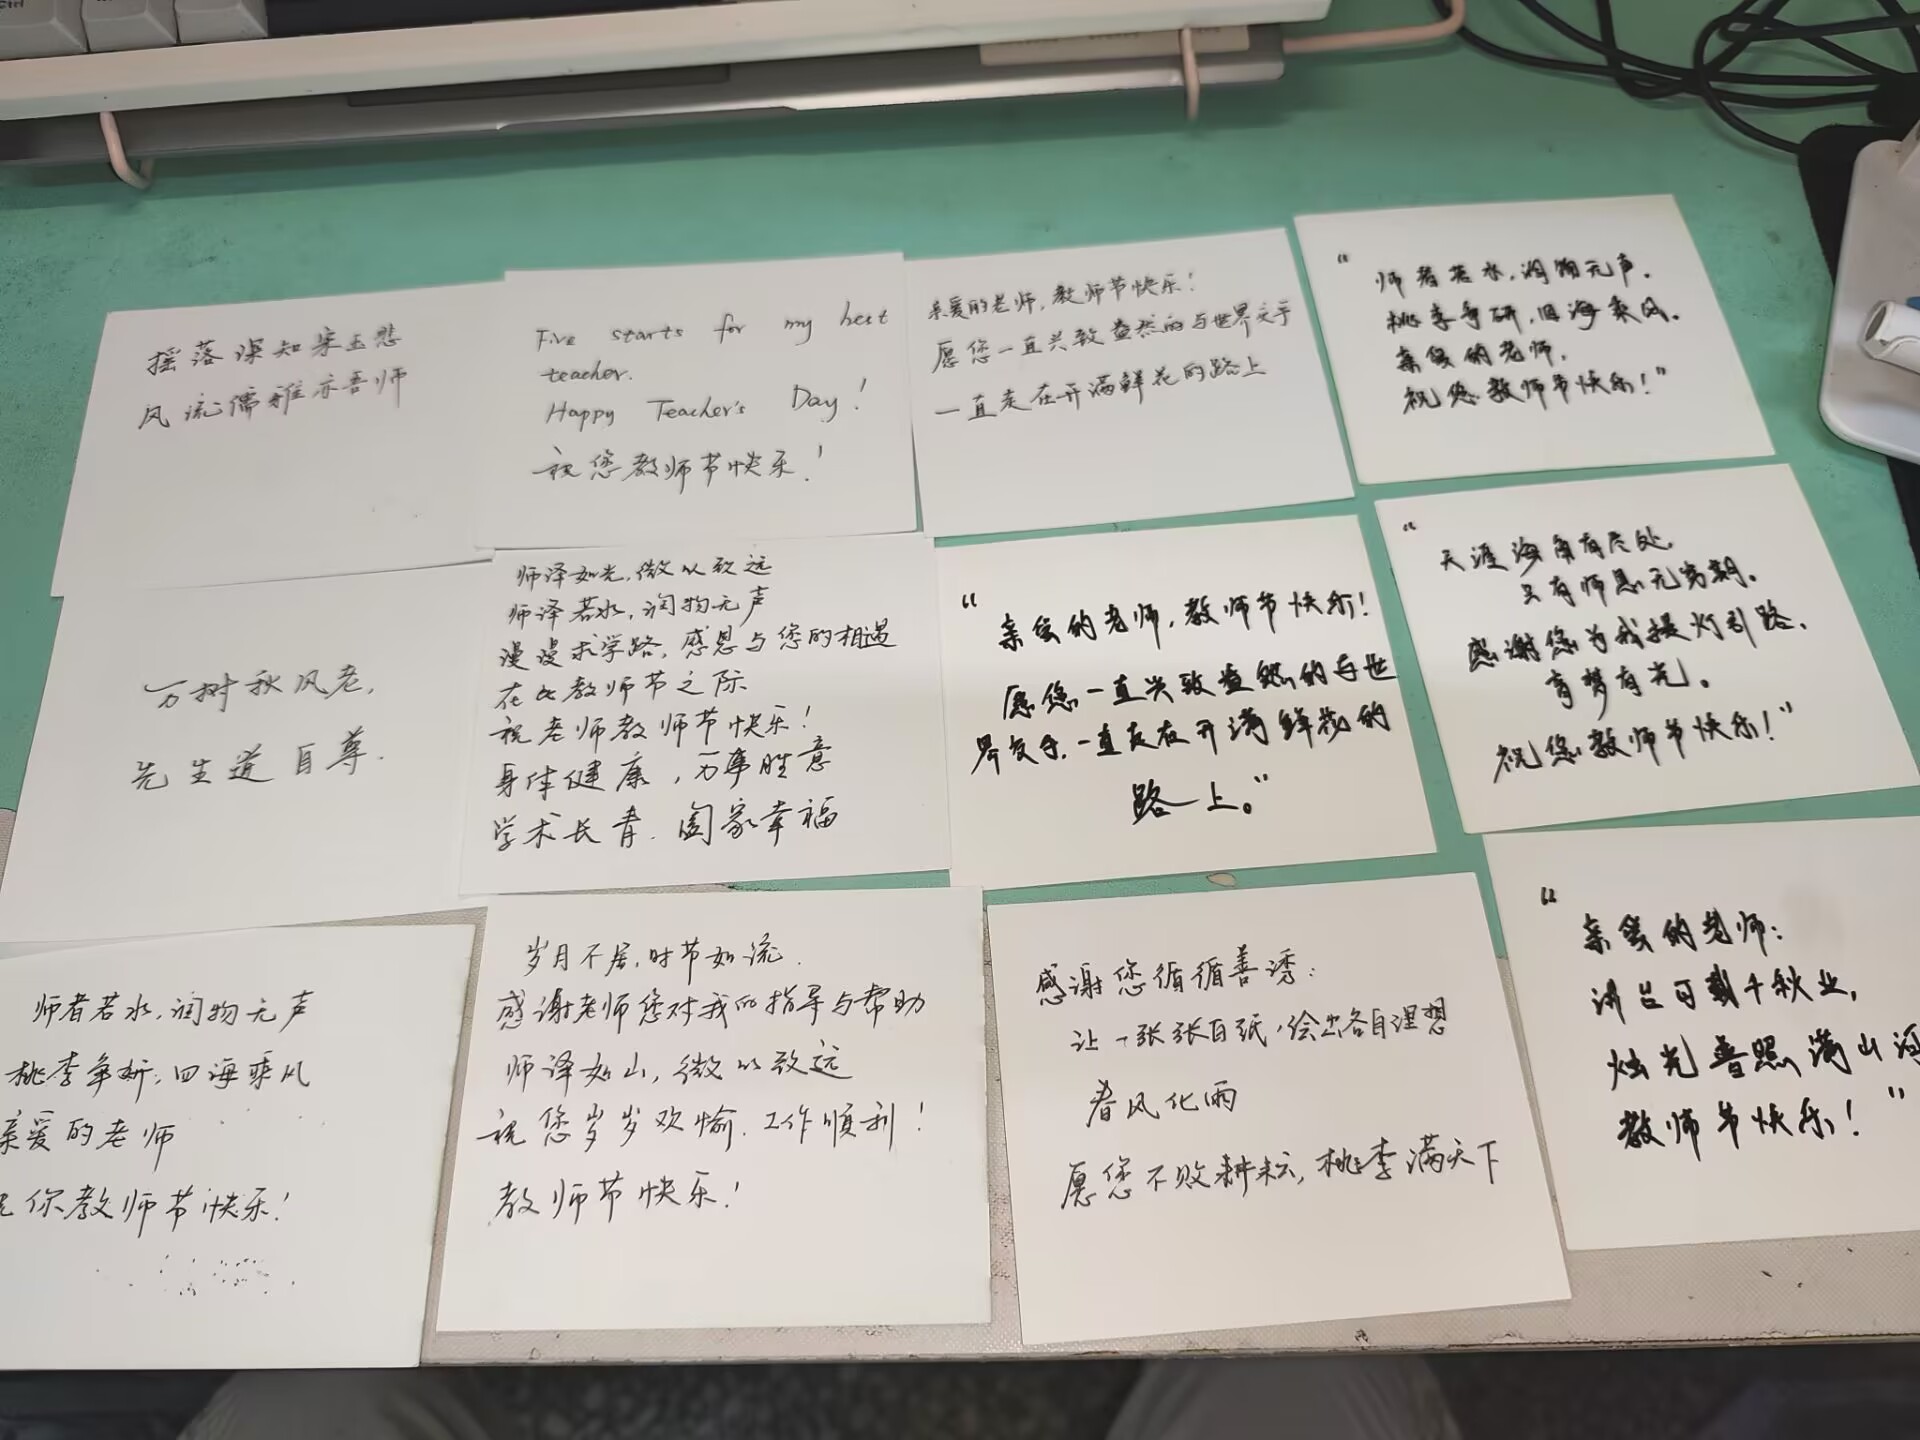 Ctrl
摇落深知宋玉悲
风流儒雅亦吾师
Five starts for my best
teacher.
Happy Teacher's Day!
祝您教师节快乐！
亲爱的老师，教师节快乐！
愿您一直兴致盎然的与世界交手
一直走在开满鲜花的路上
“师者若水，润物无声。
桃李争妍，四海乘风。
亲爱的老师，
祝您教师节快乐！”
万树秋风老，
先生道自尊.
师泽如光，微以致远
师泽若水，润物无声
漫漫求学路，感恩与您的相遇
在此教师节之际
祝老师教师节快乐！
身体健康，万事胜意
学术长青.阖家幸福
“亲爱的老师，教师节快乐！
愿您一直兴致盎然的与世
界交手，一直走在开满鲜花的
路上。”
“天涯海角有尽处，
只有师恩无穷期。
感谢您为我提灯引路，
育梦有光。
祝您教师节快乐！”
师者若水，润物无声
桃李争妍，四海乘风
亲爱的老师
祝你教师节快乐！
岁月不居，时节如流.
感谢老师您对我的指导与帮助
师泽如山，微以致远
祝您岁岁欢愉.工作顺利！
教师节快乐！
感谢您循循善诱：
让一张张白纸，绘出各自理想
春风化雨
愿您不败耕耘，桃李满天下
“亲爱的老师：
讲台可载千秋业，
烛光普照满山河
教师节快乐！”